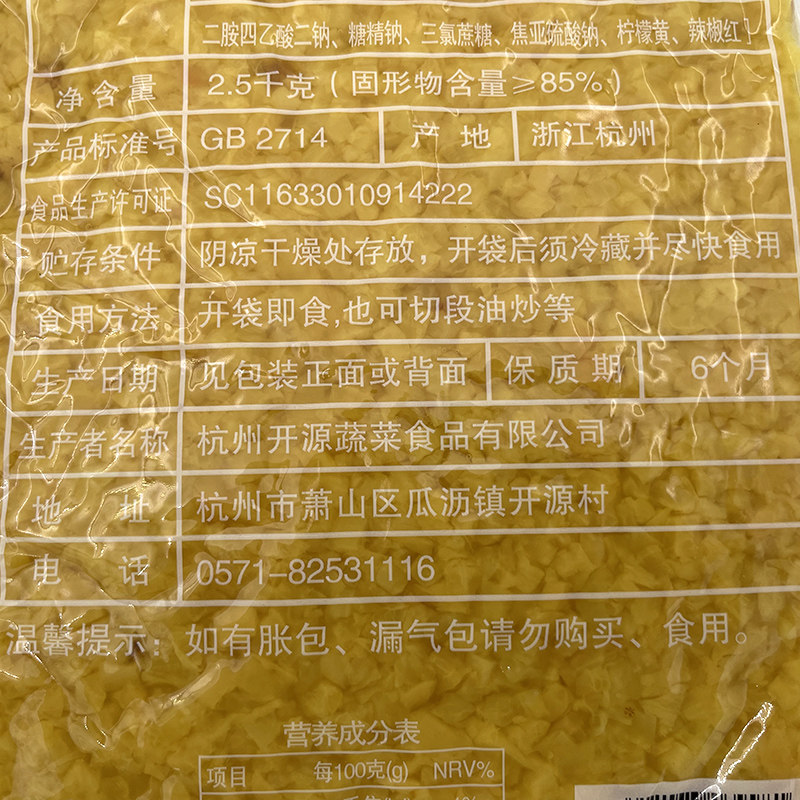 二胺四乙酸二钠、糖精钠、三氯蔗糖、焦亚硫酸钠、柠檬黄、辣椒红]
净含量 2.5千克(固形物含量≥85%)
产品标准号 GB 2714 产地 浙江杭州
食品生产许可证 SC11633010914222
贮存条件 阴凉干燥处存放，开袋后须冷藏并尽快食用
食用方法 开袋即食,也可切段油炒等
生产日期 见包装正面或背面 保质期 6个月
生产者名称 杭州开源蔬菜食品有限公司
地址 杭州市萧山区瓜沥镇开源村
电话 0571-82531116
温馨提示：如有胀包、漏气包请勿购买、食用。
营养成分表
项目 每100克(g) NRV%